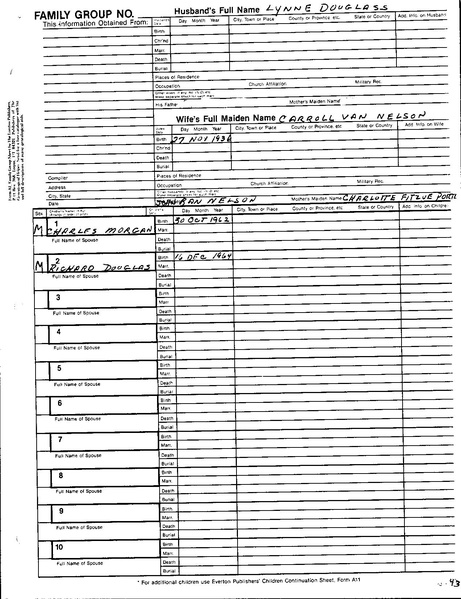 FAMILY GROUP NO.
This Information Obtained From:
Husband's Full Name LYNNE DOUGLASS
Day Month Year City, Town or Place County or Province, etc. State or Country Add. Info. on Husband
Birth
Chr'nd
Marr.
Death
Burial
Places of Residence
Occupation Church Affiliation Military Rec.
His Father Mother's Maiden Name
Wife's Full Maiden Name CARROLL VAN NELSON
Day Month Year City, Town or Place County or Province, etc. State or Country Add. Info. on Wife
Birth 27 NOV 1936
Chr'nd
Death
Burial
Compiler Places of Residence
Address Occupation Church Affiliation Military Rec.
City, State
Date JOHN RAN NELSON Mother's Maiden Name CHARLOTTE
Sex Day Month Year City, Town or Place County or Province, etc. State or Country Add. Info. on Children
1 Birth 30 OCT 1962
M CHARLES MORGAN Marr.
Full Name of Spouse Death
Burial
2 Birth 16 DEC 1964
M RICHARD DOUGLAS Marr.
Full Name of Spouse Death
Burial
3 Birth
Marr.
Full Name of Spouse Death
Burial
4 Birth
Marr.
Full Name of Spouse Death
Burial
5 Birth
Marr.
Full Name of Spouse Death
Burial
6 Birth
Marr.
Full Name of Spouse Death
Burial
7 Birth
Marr.
Full Name of Spouse Death
Burial
8 Birth
Marr.
Full Name of Spouse Death
Burial
9 Birth
Marr.
Full Name of Spouse Death
Burial
10 Birth
Marr.
Full Name of Spouse Death
Burial
* For additional children use Everton Publishers' Children Continuation Sheet, Form A11
93